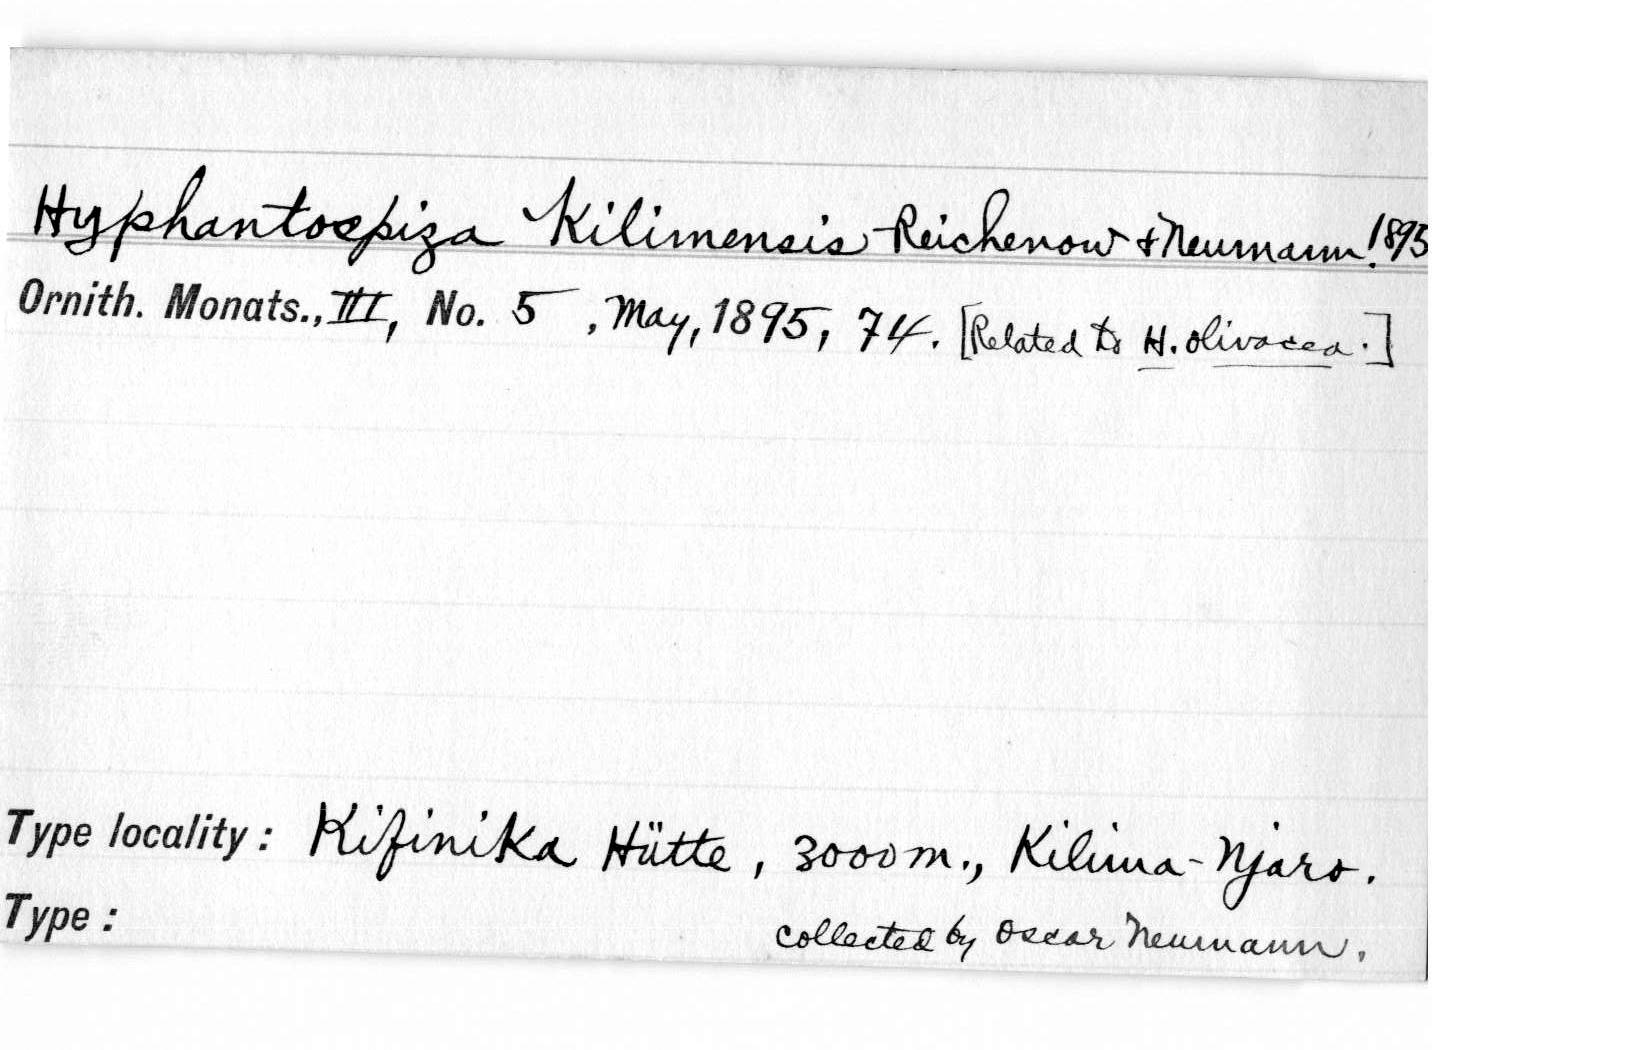 Hyphantospiza Kilimensis Reichenow & Neumann! 1895
Ornith. Monats., III, No. 5, May, 1895, 74. [Related to H. olivacea.]
Type locality: Kifinika Hütte, 3000 m., Kilima-Njaro.
Type: collected by Oscar Neumann.